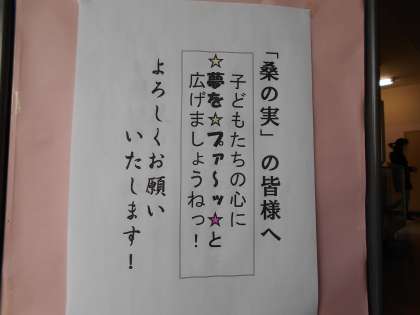 「桑の実」の皆様へ
子どもたちの心に
☆夢を☆ブァ～ッ☆と
広げましょうねっ！
よろしくお願い
いたします！